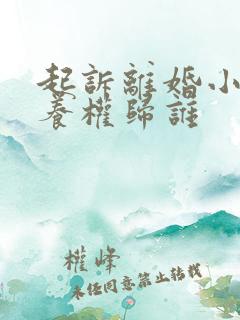 起訴離婚小
養權歸誰
權峰
未经同意禁止转载